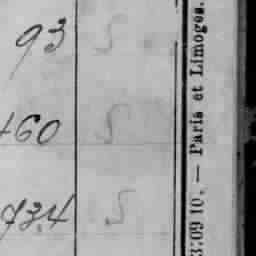 93 S
460 S
934 S
3:09 10. — Paris et Limoges.